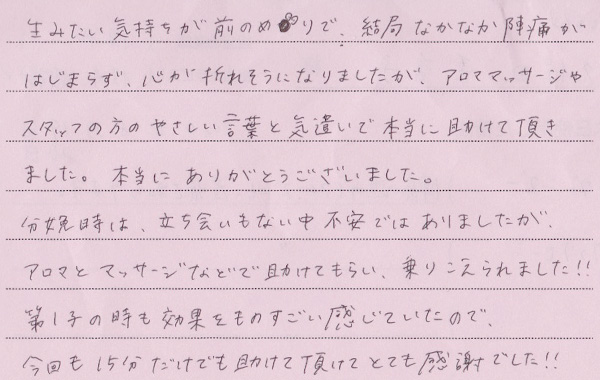 生みたい気持ちが前のめりで、結局なかなか陣痛が
はじまらず、心が折れそうになりましたが、アロママッサージや
スタッフの方のやさしい言葉と気遣いで本当に助けて頂き
ました。本当にありがとうございました。
分娩時は、立ち会いもない中不安ではありましたが、
アロマとマッサージなどで助けてもらい、乗りこえられました!!
第1子の時も効果をものすごい感じていたので、
今回も15分だけでも助けて頂けてとても感謝でした!!